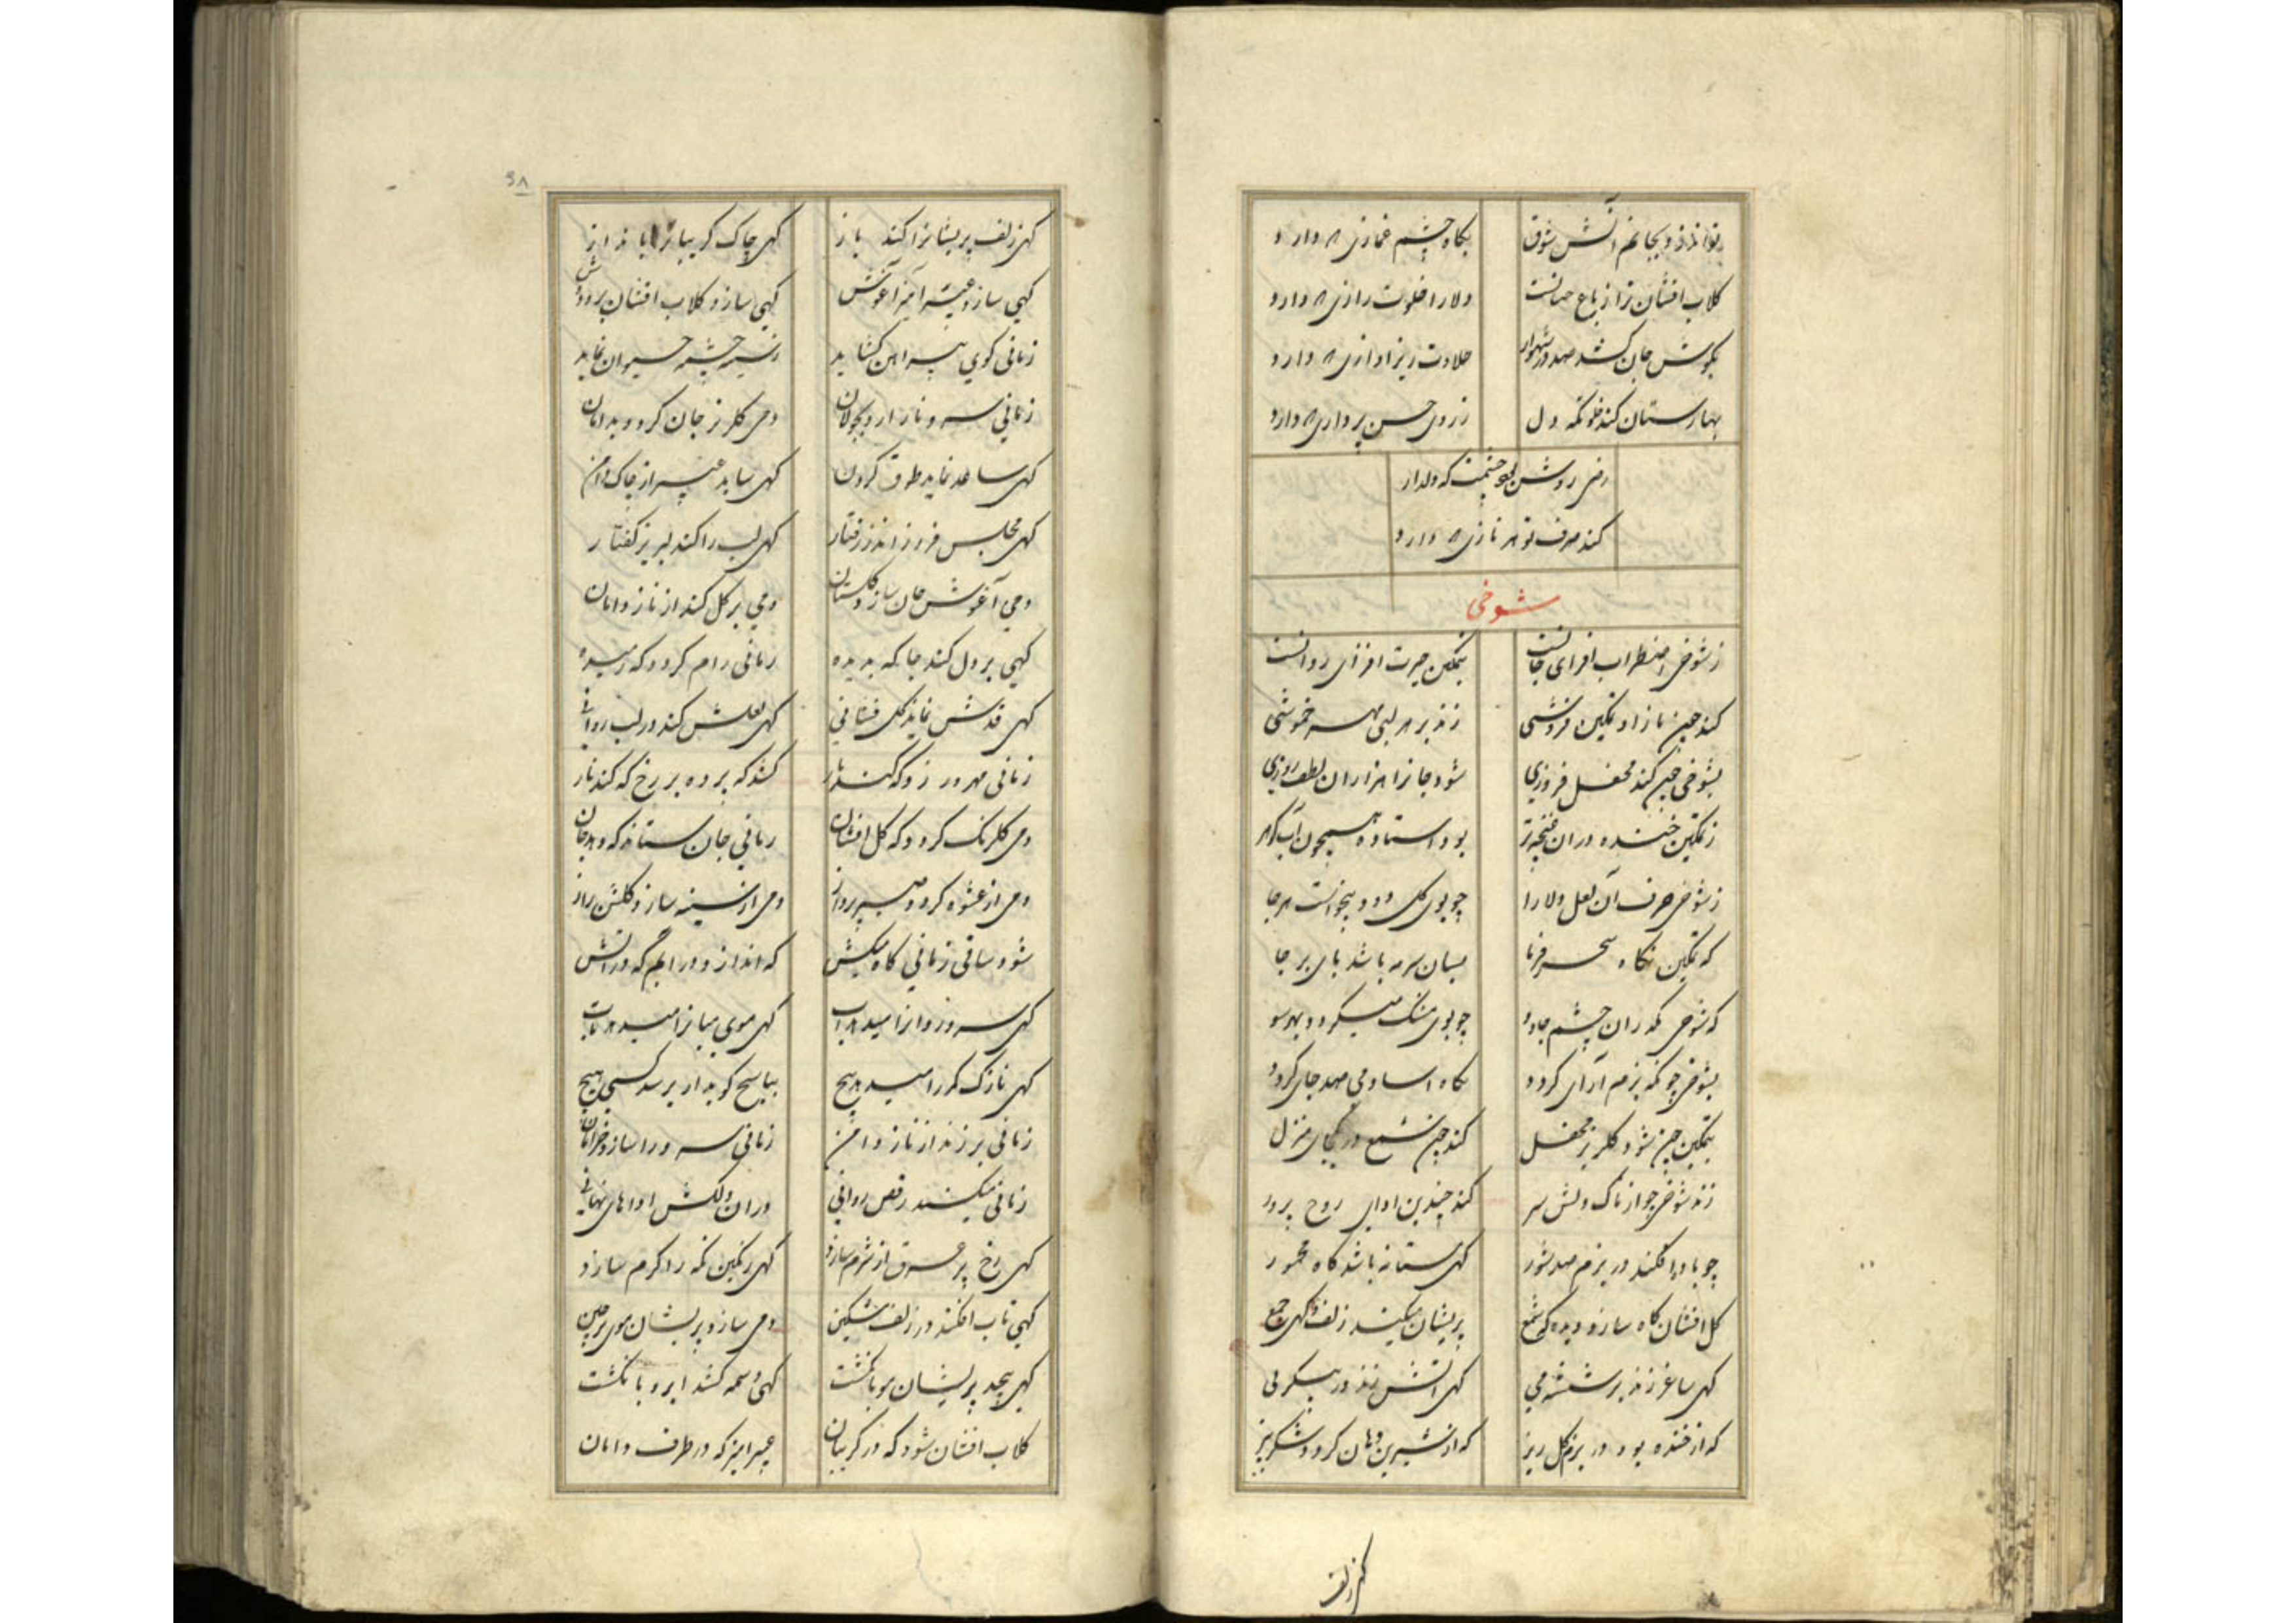 نگاه چشم غمازی که دارد
کلاب افشان ترا از باغ
دلارا خلوت رازی که دارد
بکوش جان کشد صد در شهوار
حلاوت ریز اوازی که دارد
بهارستان کند دل
ز روی حسن پردازی که دارد
که دلدار
کند صرف تو هر نازی که دارد
شوخی
ز شوخی اضطراب افزای جانست
بتمکین حیرت افزای روانست
کند چین ناز او تمکین فروشی
زند بر هر لبی مهر خموشی
بشوخی چین کند محفل فروزی
شود جانرا هزاران لطف روزی
ز تمکین خنده دران غنچه تر
بود استاده همچون آب کوهر
ز شوخی حرف آن لعل دلارا
چو بوی کل دود بیخواست هر جا
که تمکین نکاه سحر فرما
بسان سرمه باشد پای بر جا
که شوخی نکه زان چشم جادو
چو بوی مشک میکردد بهر سو
بشوخی چو نکه بزم آرای کردد
نکاه اسا دمی صد جای کردد
بتمکین چین شود کلریز محفل
کند چین شمع در یکجای منزل
زند شوخی چو از ناک دلش سر
کند چندین ادای روح پرور
چو باده افکند در بزم صد شور
کهی مستانه باشد کاه مخمور
کل افشان کاه سازد دیده که شمع
پریشان میکند زلف و کهی جمع
کهی ساغر زند بر شیشه می
کهی آتش زند در پیکر نی
که از خنده بود در بزم کل ریز
که از شیرین دهان کردد شکر ریز
کهی زلف
۹۸
کهی زلف پریشانرا کند باز
کهی چاک کریبانرا
کهی سازد عبیر آمیز آغوش
کهی سازد کلاب افشان بر و دوش
زمانی کوی پیراهن کشاید
ز سینه چشمه حیوان نماید
زمانی سرو ناز آرد بجولان
دمی کلریز جان کردد بدامان
کهی ساعد نماید طوق کردن
کهی ساید عبیر از چاک دامن
کهی مجلس فروز اندر رفتار
کهی لب را کند لبریز کفتار
دمی آغوش جان سازد کلستان
دمی پر کل کند از ناز دامان
کهی بر دل کند جا که بدیده
زمانی رام کردد که رمیده
کهی قدش نماید کل فشانی
کهی لعلش کند در لب روانی
زمانی مهر ورزد که کند ناز
کشد که پرده بر رخ که کند باز
دمی کلرنک کردد که کل افشان
زمانی جان ستاند که دهد جان
دمی از عشوه کردد صید پرداز
دمی از سینه سازد کلشن راز
شود ساقی زمانی کاه میکش
که اندازد در آبم که در آتش
کهی سرو روانرا میدهد آب
کهی موی میانرا میدهد تاب
کهی نازک کمر را میدهد پیچ
بپاسخ کوید ار پرسد کسی هیچ
زمانی بر زند از ناز دامن
زمانی سرو را سازد خرامان
زمانی میکند رقص روانی
در ان دلکش اداهای نهانی
کهی رخ پر عرق از شرم سازد
کهی رنکین نکه را کرم سازد
کهی تاب افکند در زلف مشکین
دمی سازد پریشان موی پر چین
کهی پیچد پریشان مو بانکشت
کهی وسمه کشد ابرو بانکشت
کلاب افشان شود که در کریبان
عبیر امیز که در طرف دامان